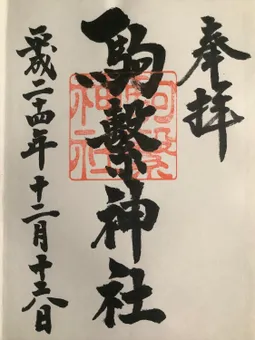 奉拝
駒繋神社
駒繋
神社
平成二十四年十二月十六日